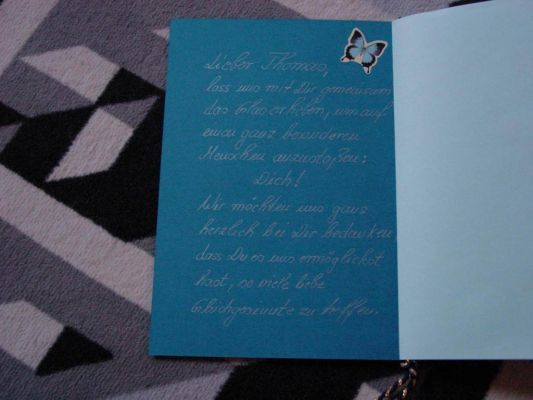 Lieber Thomas,
lass uns mit Dir gemeinsam
das Glas erheben, um auf
einen ganz besonderen
Menschen anzustoßen:
Dich!
Wir möchten uns ganz
herzlich bei Dir bedanken,
dass Du es uns ermöglichst
hast, so viele liebe
Gleichgesinnte zu treffen.